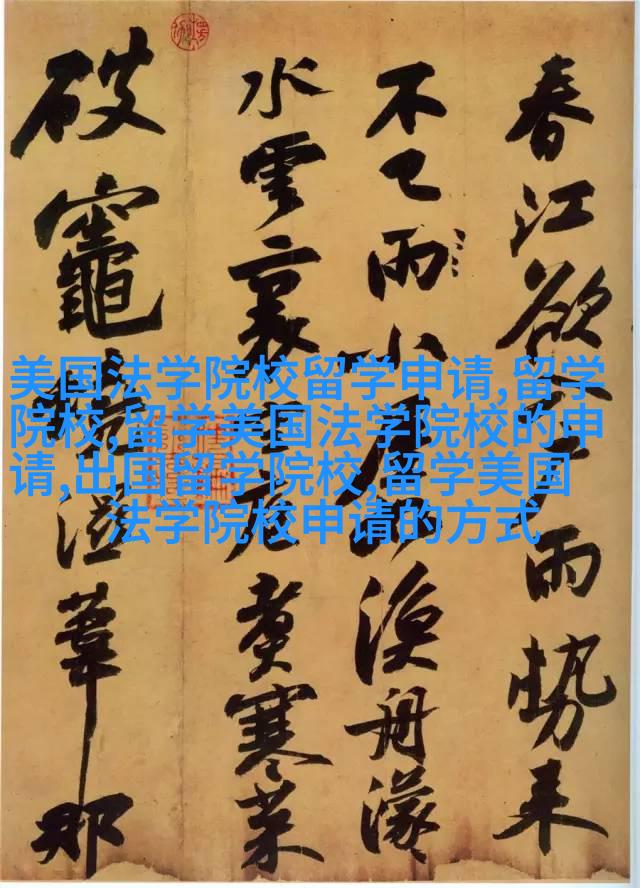 春江欲入雨勢来
不已雨小屋如漁舟濛
水雲裏庖煮寒菜
破竈燒溼葦那
美国法学院校留学申请,留学
院校,留学美国法学院校的申
请,出国留学院校,留学美国
法学院校申请的方式